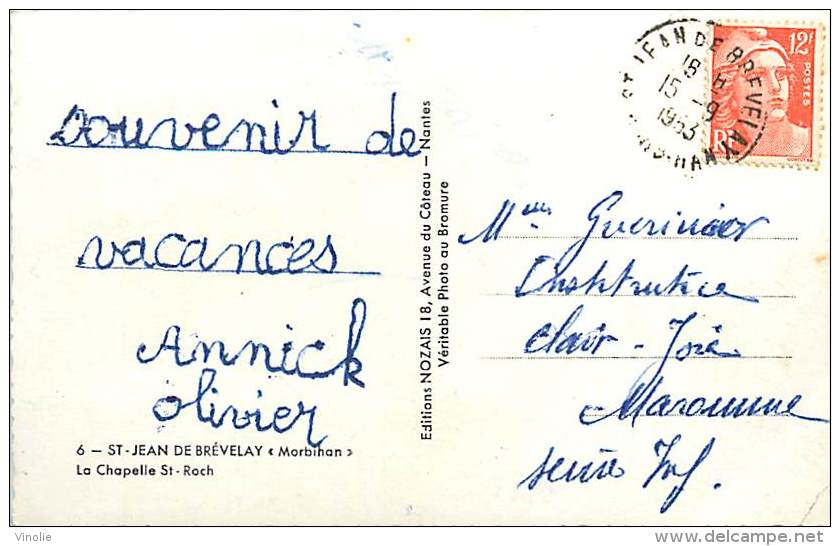 souvenir de
vacances
Annick
olivier
6 — ST-JEAN DE BRÉVELAY « Morbihan »
La Chapelle St-Roch
Editions NOZAIS 18, Avenue du Côteau — Nantes
Véritable Photo au Bromure
ST JEAN DE BREVELAY
18 H
15 -9
1953
MORBIHAN
12F
POSTES
RF
Guerinier
Institutrice
Clair - Joie
Maromme
seine Inf.
Vinolie
www.delcampe.net